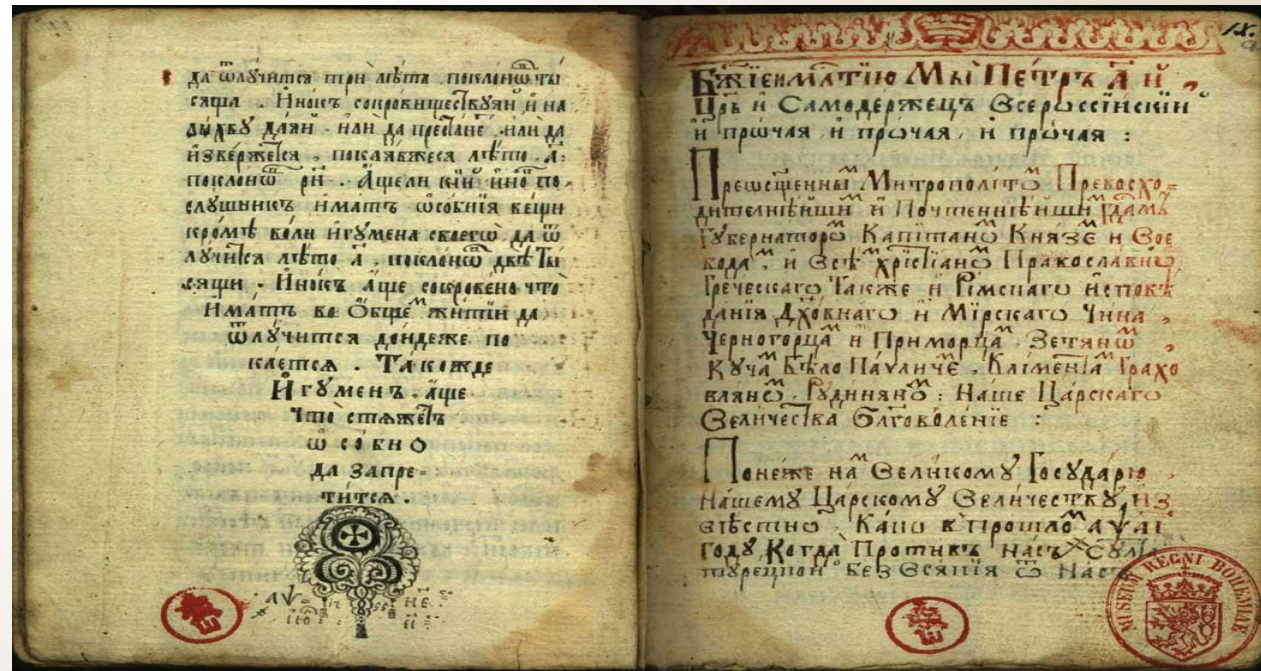 да ѿлꙋчится три лѣта, поклонѡⷡ ты
сяща. Инокъ сокровиществꙋяй и на
лихвꙋ даяй. или да престанеⷮ, или да
извержется, покаявжеся лѣто, а҃:
поклонѡⷡ рн҃. Аще ли кій иноⷦ по-
слꙋшникъ имать ѡсобнія вещи
кромѣ воли игꙋмена своегѡ, да ѿ
лꙋчится лѣто а҃, поклонѡⷡ двѣ ты
сящи. Инокъ аще сокровено что
имать во Общеⷨ житіи да
ѿлꙋчится дондеже по
кается. Такожде
Игꙋменъ. аще
что стяжетъ
ѡсобно
да запре-
тится.
Бж҃іею млⷭ҇тію Мы Петръ А҃ й,
Цр҃ь и Самодержецъ Всероссійскій
и прѡчая, и прѡчая, и прѡчая:
Преѡсщ҃еннымⷨ Митрополитѡⷨ Превосхо=
дителнѣйшиⷨ и Почтеннѣйшиⷨ гдⷭ҇амъ
Гꙋбернаторѡⷨ Капітанѡⷨ Княземⷨ и Вое
водаⷨ, и Всѣⷨ хрⷭ҇тіанѡⷨ Православнымⷨ
Греческагѡ Также и Римскагѡ исповѣ
данія Дх҃овнагѡ и Мірскагѡ Чина,
Черногорцаⷨ и Приморцаⷨ. Зетянѡⷨ
Кꙋчаⷨ Бѣло Паꙋличеⷨ, Климентаⷨ Грахо
влянѡⷨ, Рꙋдинянѡⷨ: Наше Царскагѡ
Величества Блг҃оволеніе:
Понеже наⷨ Великомꙋ Государю
нашемꙋ Царскомꙋ Величествꙋ, из
вѣстно, Какѡ в прошлоⷨ ҂аѱаі
годꙋ, Когда Противъ насъ Сꙋлта
турецкой без Всякія ѿ Насъ
MUSEUM REGNI BOHEMIAE